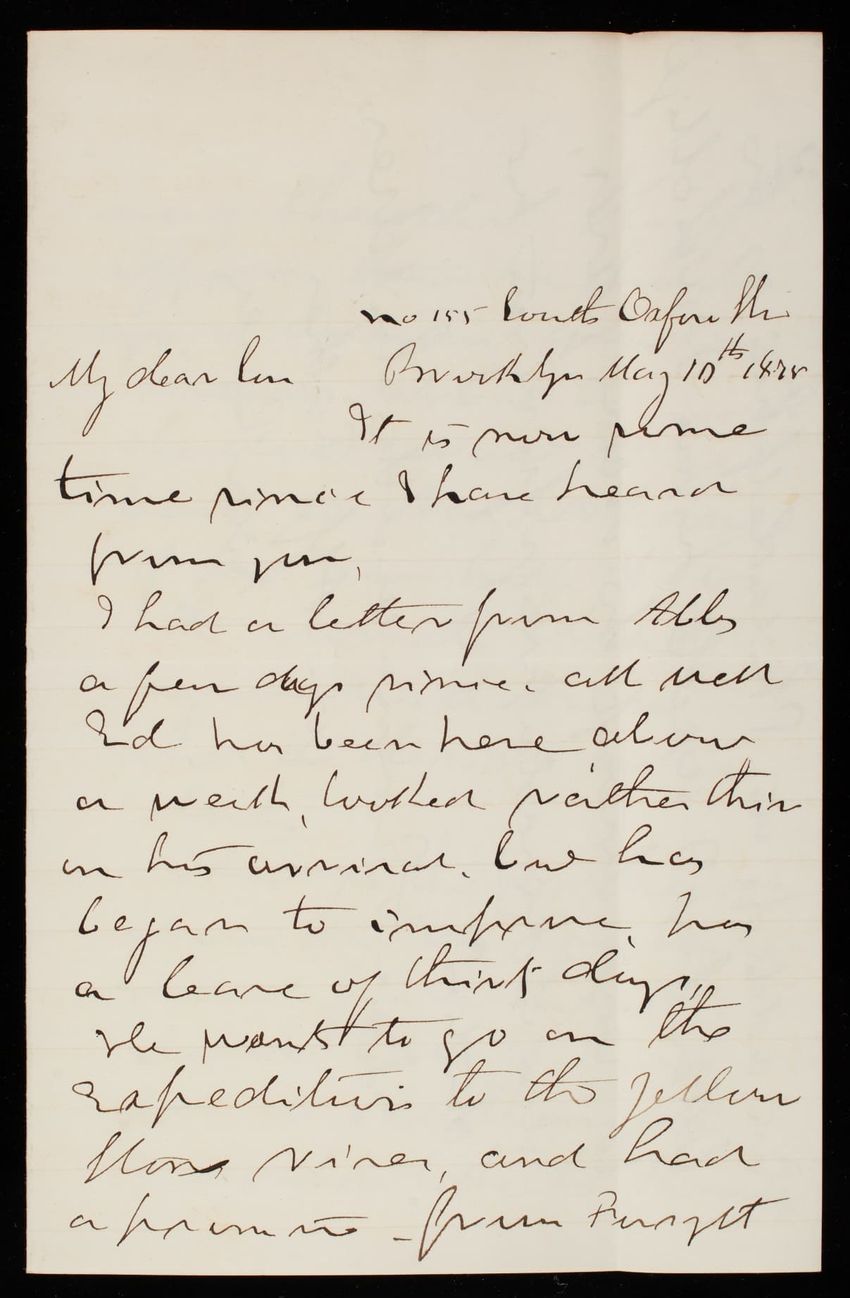 No 155 South Oxford St
My dear Son Brooklyn May 10th 1875
It is now some
time since I have heard
from you,
I had a letter from Abby
a few days since. all well
Ed has been here about
a week, looked rather thin
on his arrival, but has
began to improve, has
a leave of thirty days,
He wants to go on the
Expedition to the Yellow
Stone river, and had
a promise - from Forsyth